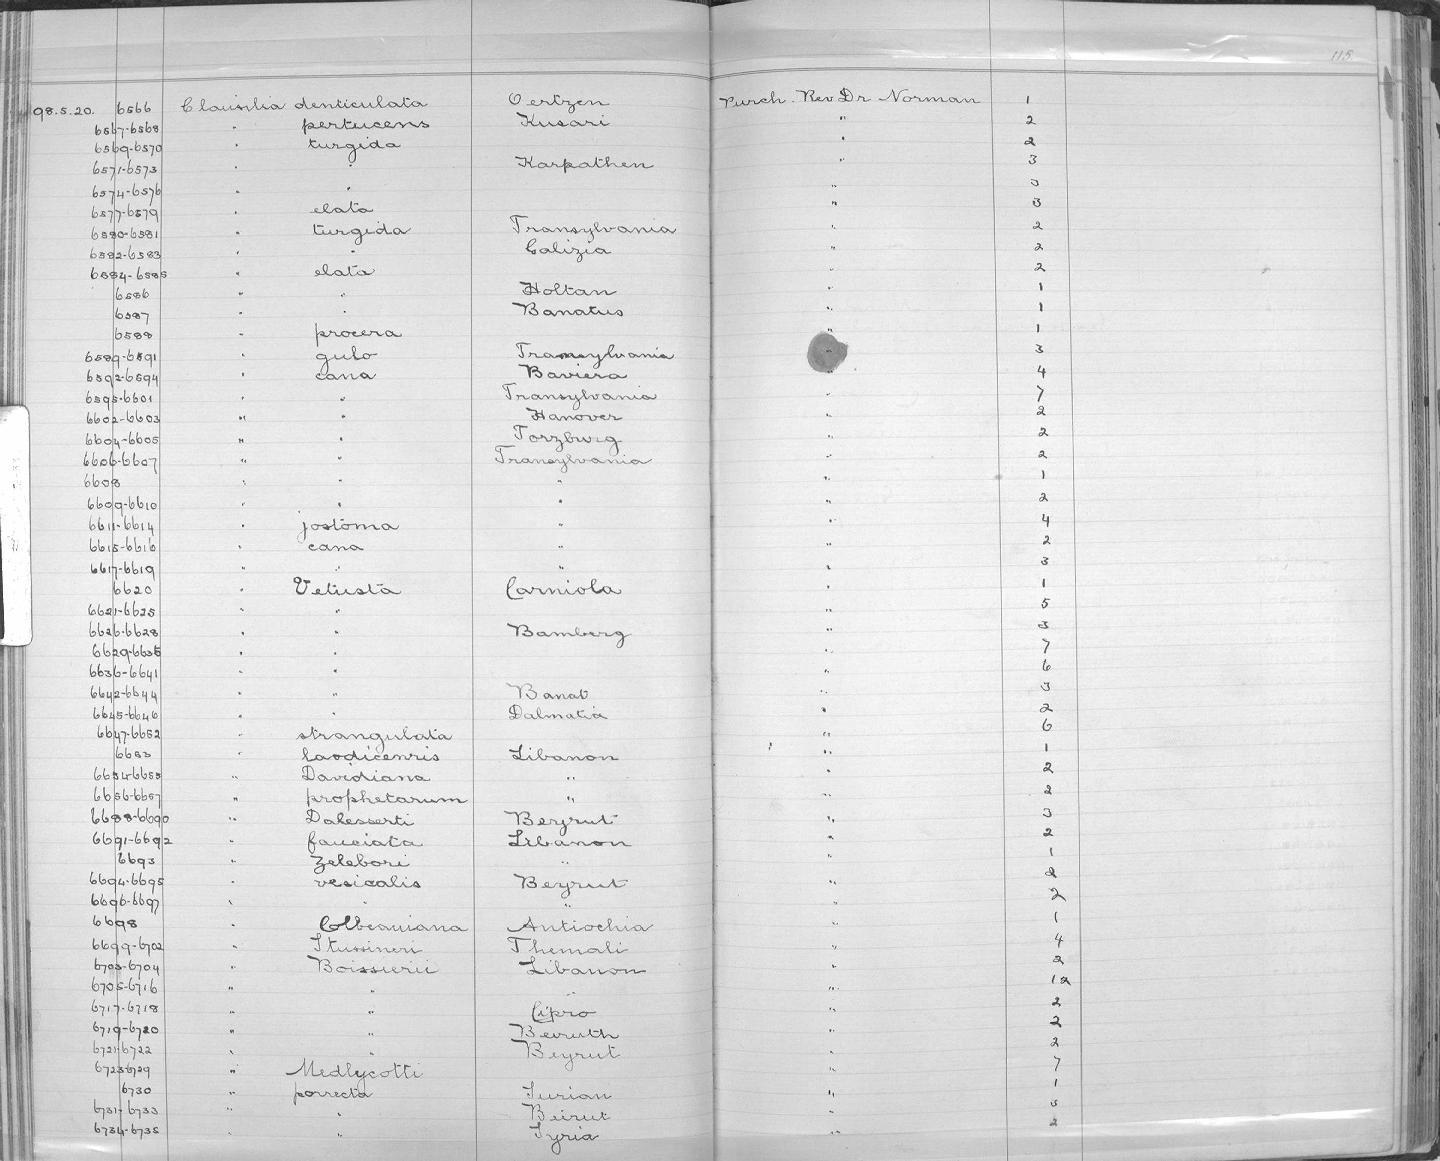 115
98.5.20. 6566 Clausilia denticulata Oertzen Purch. Rev Dr Norman 1
6567-6568 " pertucens Kusari " 2
6569-6570 " turgida " 2
6571-6573 " " Karpathen " 3
6574-6576 " " " 3
6577-6579 " elata " 3
6580-6581 " turgida Transylvania " 2
6582-6583 " " Galizia " 2
6584-6585 " elata " 2
6586 " " Holtan " 1
6587 " " Banatus " 1
6588 " procera " 1
6589-6591 " gulo Transylvania " 3
6592-6594 " cana Baviera " 4
6595-6601 " " Transylvania " 7
6602-6603 " " Hanover " 2
6604-6605 " " Torzburg " 2
6606-6607 " " Transylvania " 2
6608 " " " " 1
6609-6610 " " " " 2
6611-6614 " jostoma " " 4
6615-6616 " cana " " 2
6617-6619 " " " " 3
6620 " Vetusta Carniola " 1
6621-6625 " " " 5
6626-6628 " " Bamberg " 3
6629-6635 " " " 7
6636-6641 " " " 6
6642-6644 " " Banat " 3
6645-6646 " " Dalmatia " 2
6647-6652 " strangulata " 6
6653 " laodicenris Libanon " 1
6654-6655 " Davidiana " " 2
6656-6657 " prophetarum " " 2
6688-6690 " Dalesserti Beyrut " 3
6691-6692 " fauciata Libanon " 2
6693 " Zelebori " " 1
6694-6695 " vesicalis Beyrut " 2
6696-6697 " " " " 2
6698 " Colbeauiana Antiochia " 1
6699-6702 " Stussineri Themali " 4
6703-6704 " Boissierii Libanon " 2
6705-6716 " " " " 12
6717-6718 " " Cipro " 2
6719-6720 " " Beiruth " 2
6721-6722 " " Beyrut " 2
6723-6729 " Medlycotti " 7
6730 " porrecta Surian " 1
6731-6733 " " Beirut " 3
6734-6735 " " Syria " 2